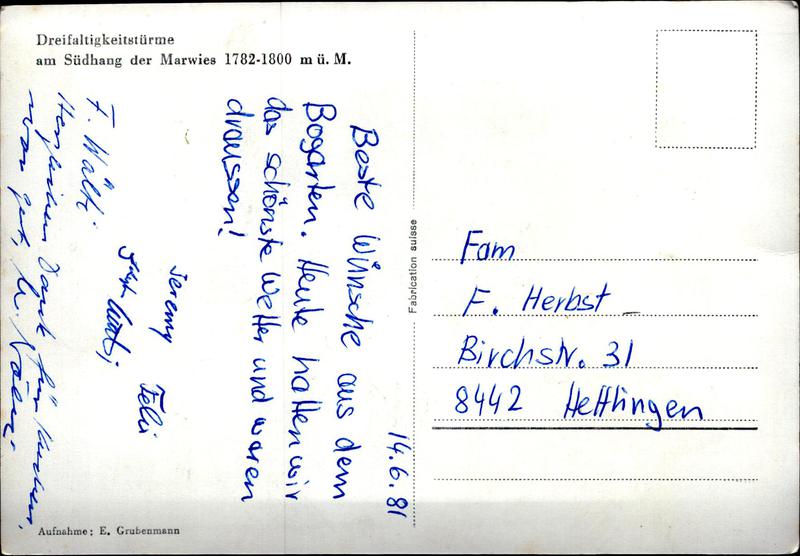 Dreifaltigkeitstürme
am Südhang der Marwies 1782-1800 m ü. M.
14.6.81
Beste Wünsche aus dem
Bogarten. Heute hatten wir
das schönste Wetter und waren
draussen!
Jeremy Felix
F. Wälti
Herzlichen Dank für
war gut,
Aufnahme: E. Grubenmann
Fabrication suisse
Fam
F. Herbst
Birchstr. 31
8442 Hettlingen